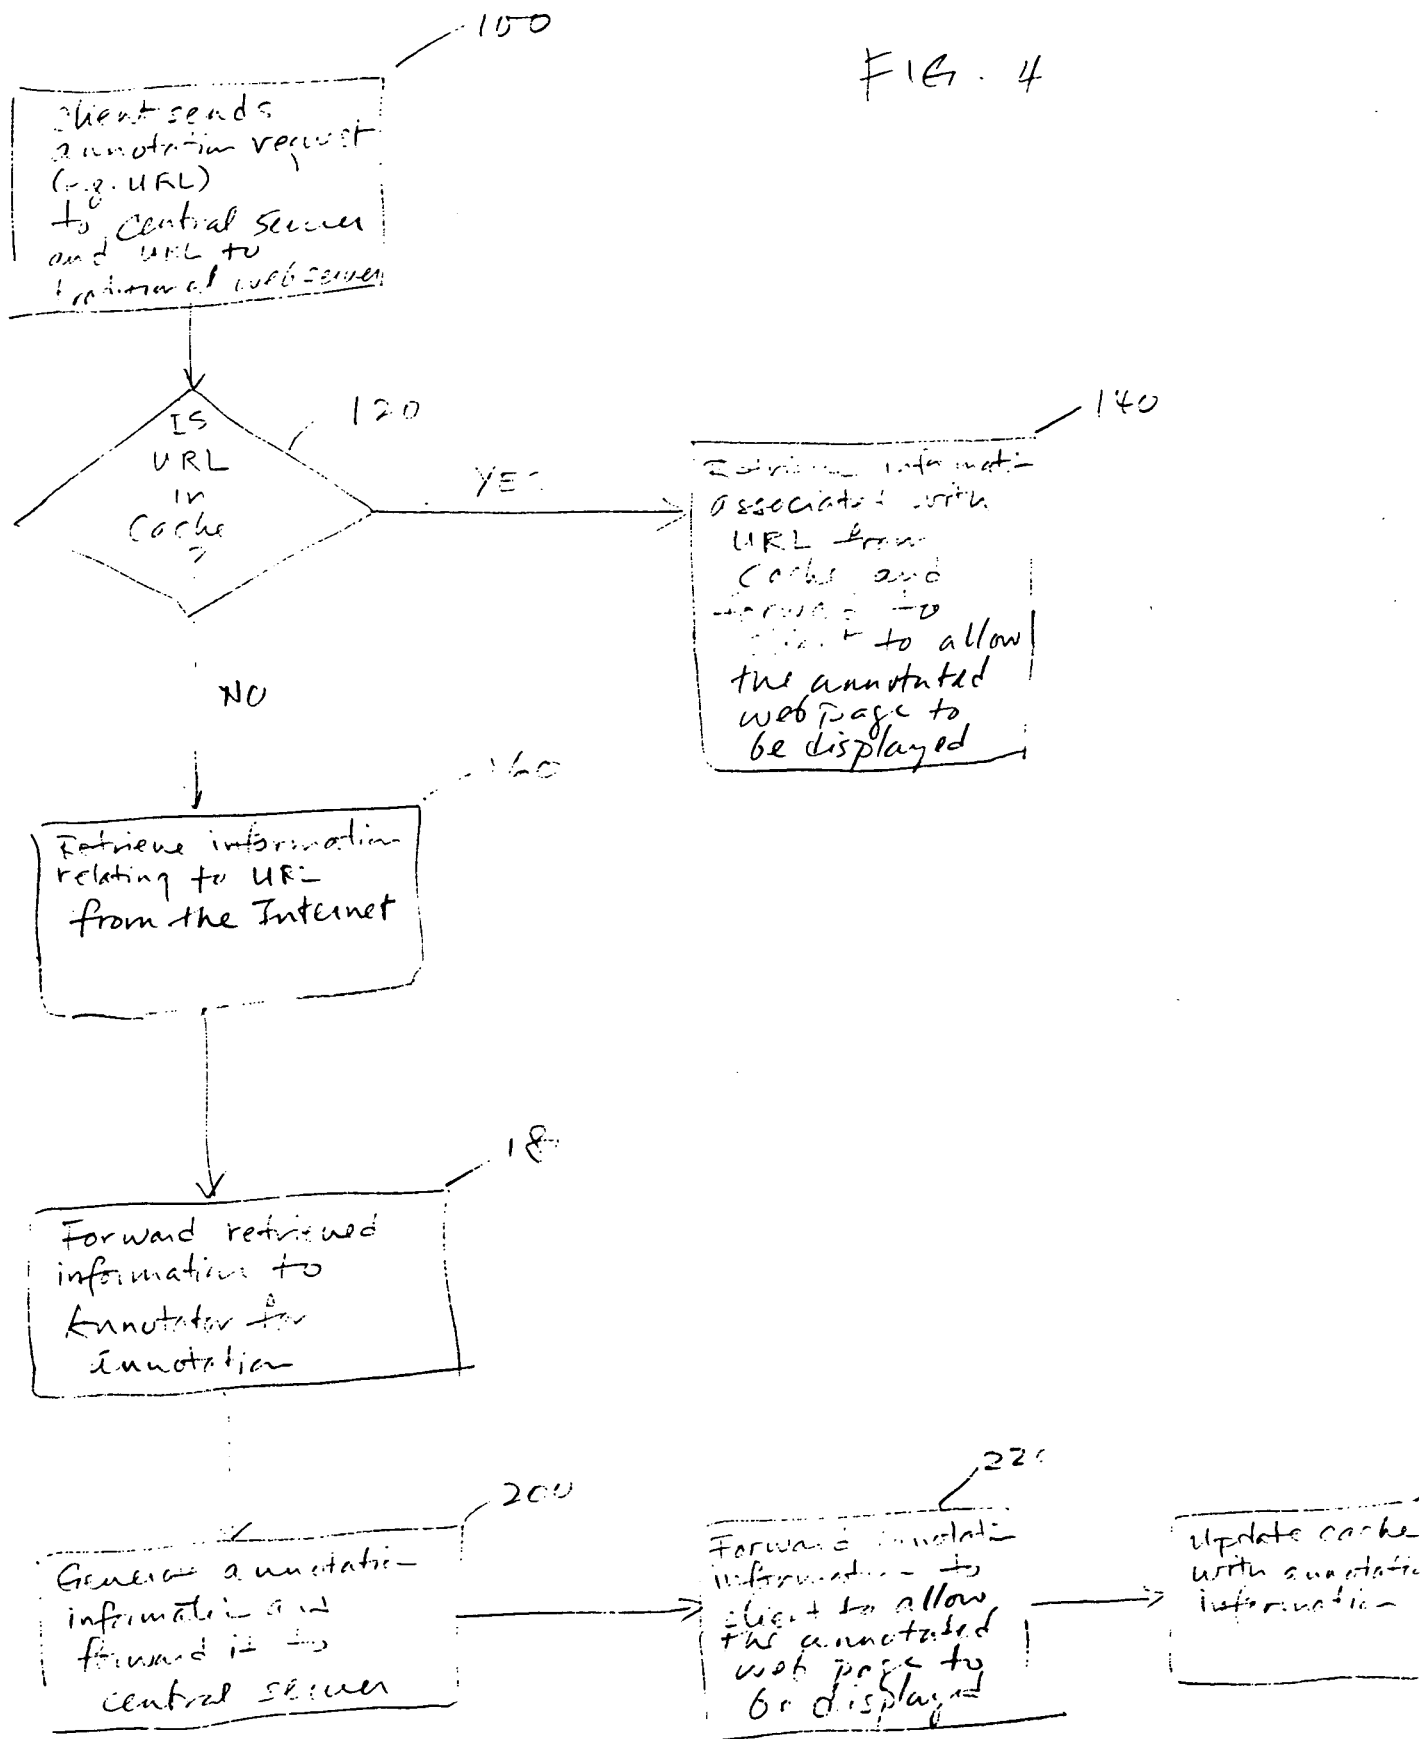 100
FIG. 4
Client sends
annotation request
(e.g. URL)
to central server
and URL to
traditional web server
120
IS
URL
in
Cache
?
YES
140
Retrieve informati
associated with
URL from
Cache and
forward to
client to allow
the annotated
web page to
be displayed
NO
160
Retrieve information
relating to URL
from the Internet
18
Forward retrieved
information to
Annotator for
annotation
200
Generate annotation
information and
forward it to
central server
220
Forward annotation
information to
client to allow
the annotated
web page to
be displayed
Update cache
with annotation
information